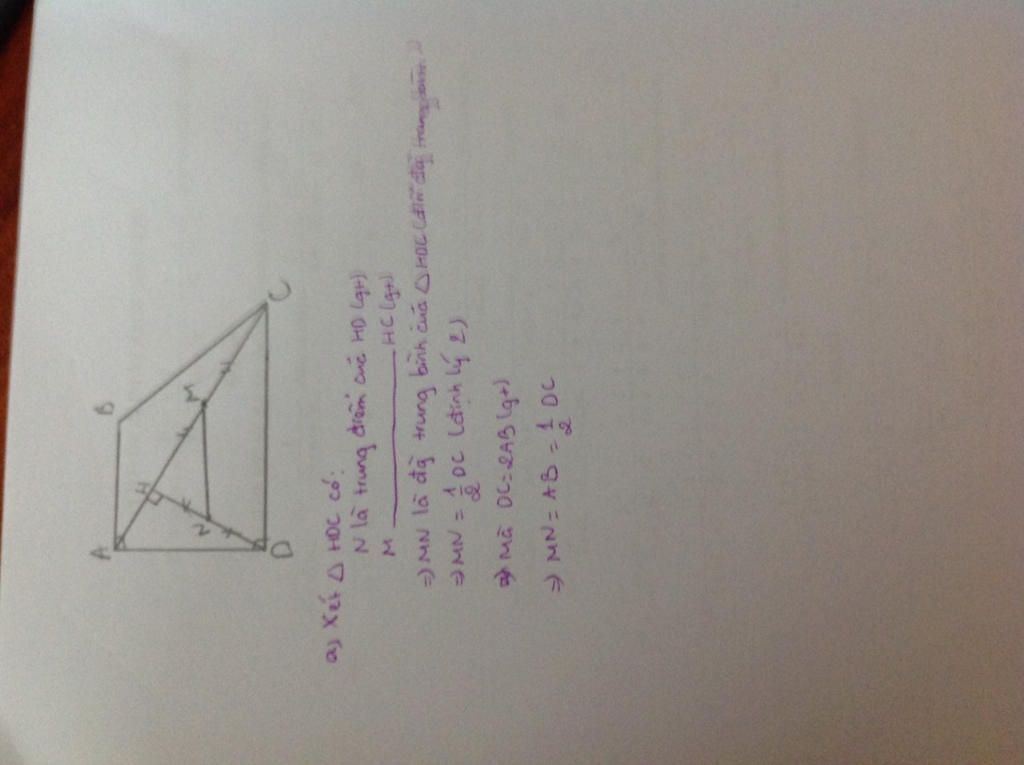 A
B
H
M
N
D
C
a) Xét △ HDC có:
N là trung điểm của HD (gt)
M ———— HC (gt)
=) MN là đg trung bình của △ HDC (dhn đg trung bình)
=) MN = 1/2 DC (định lý 2)
Mà DC = 2AB (gt)
=) MN = AB = 1/2 DC